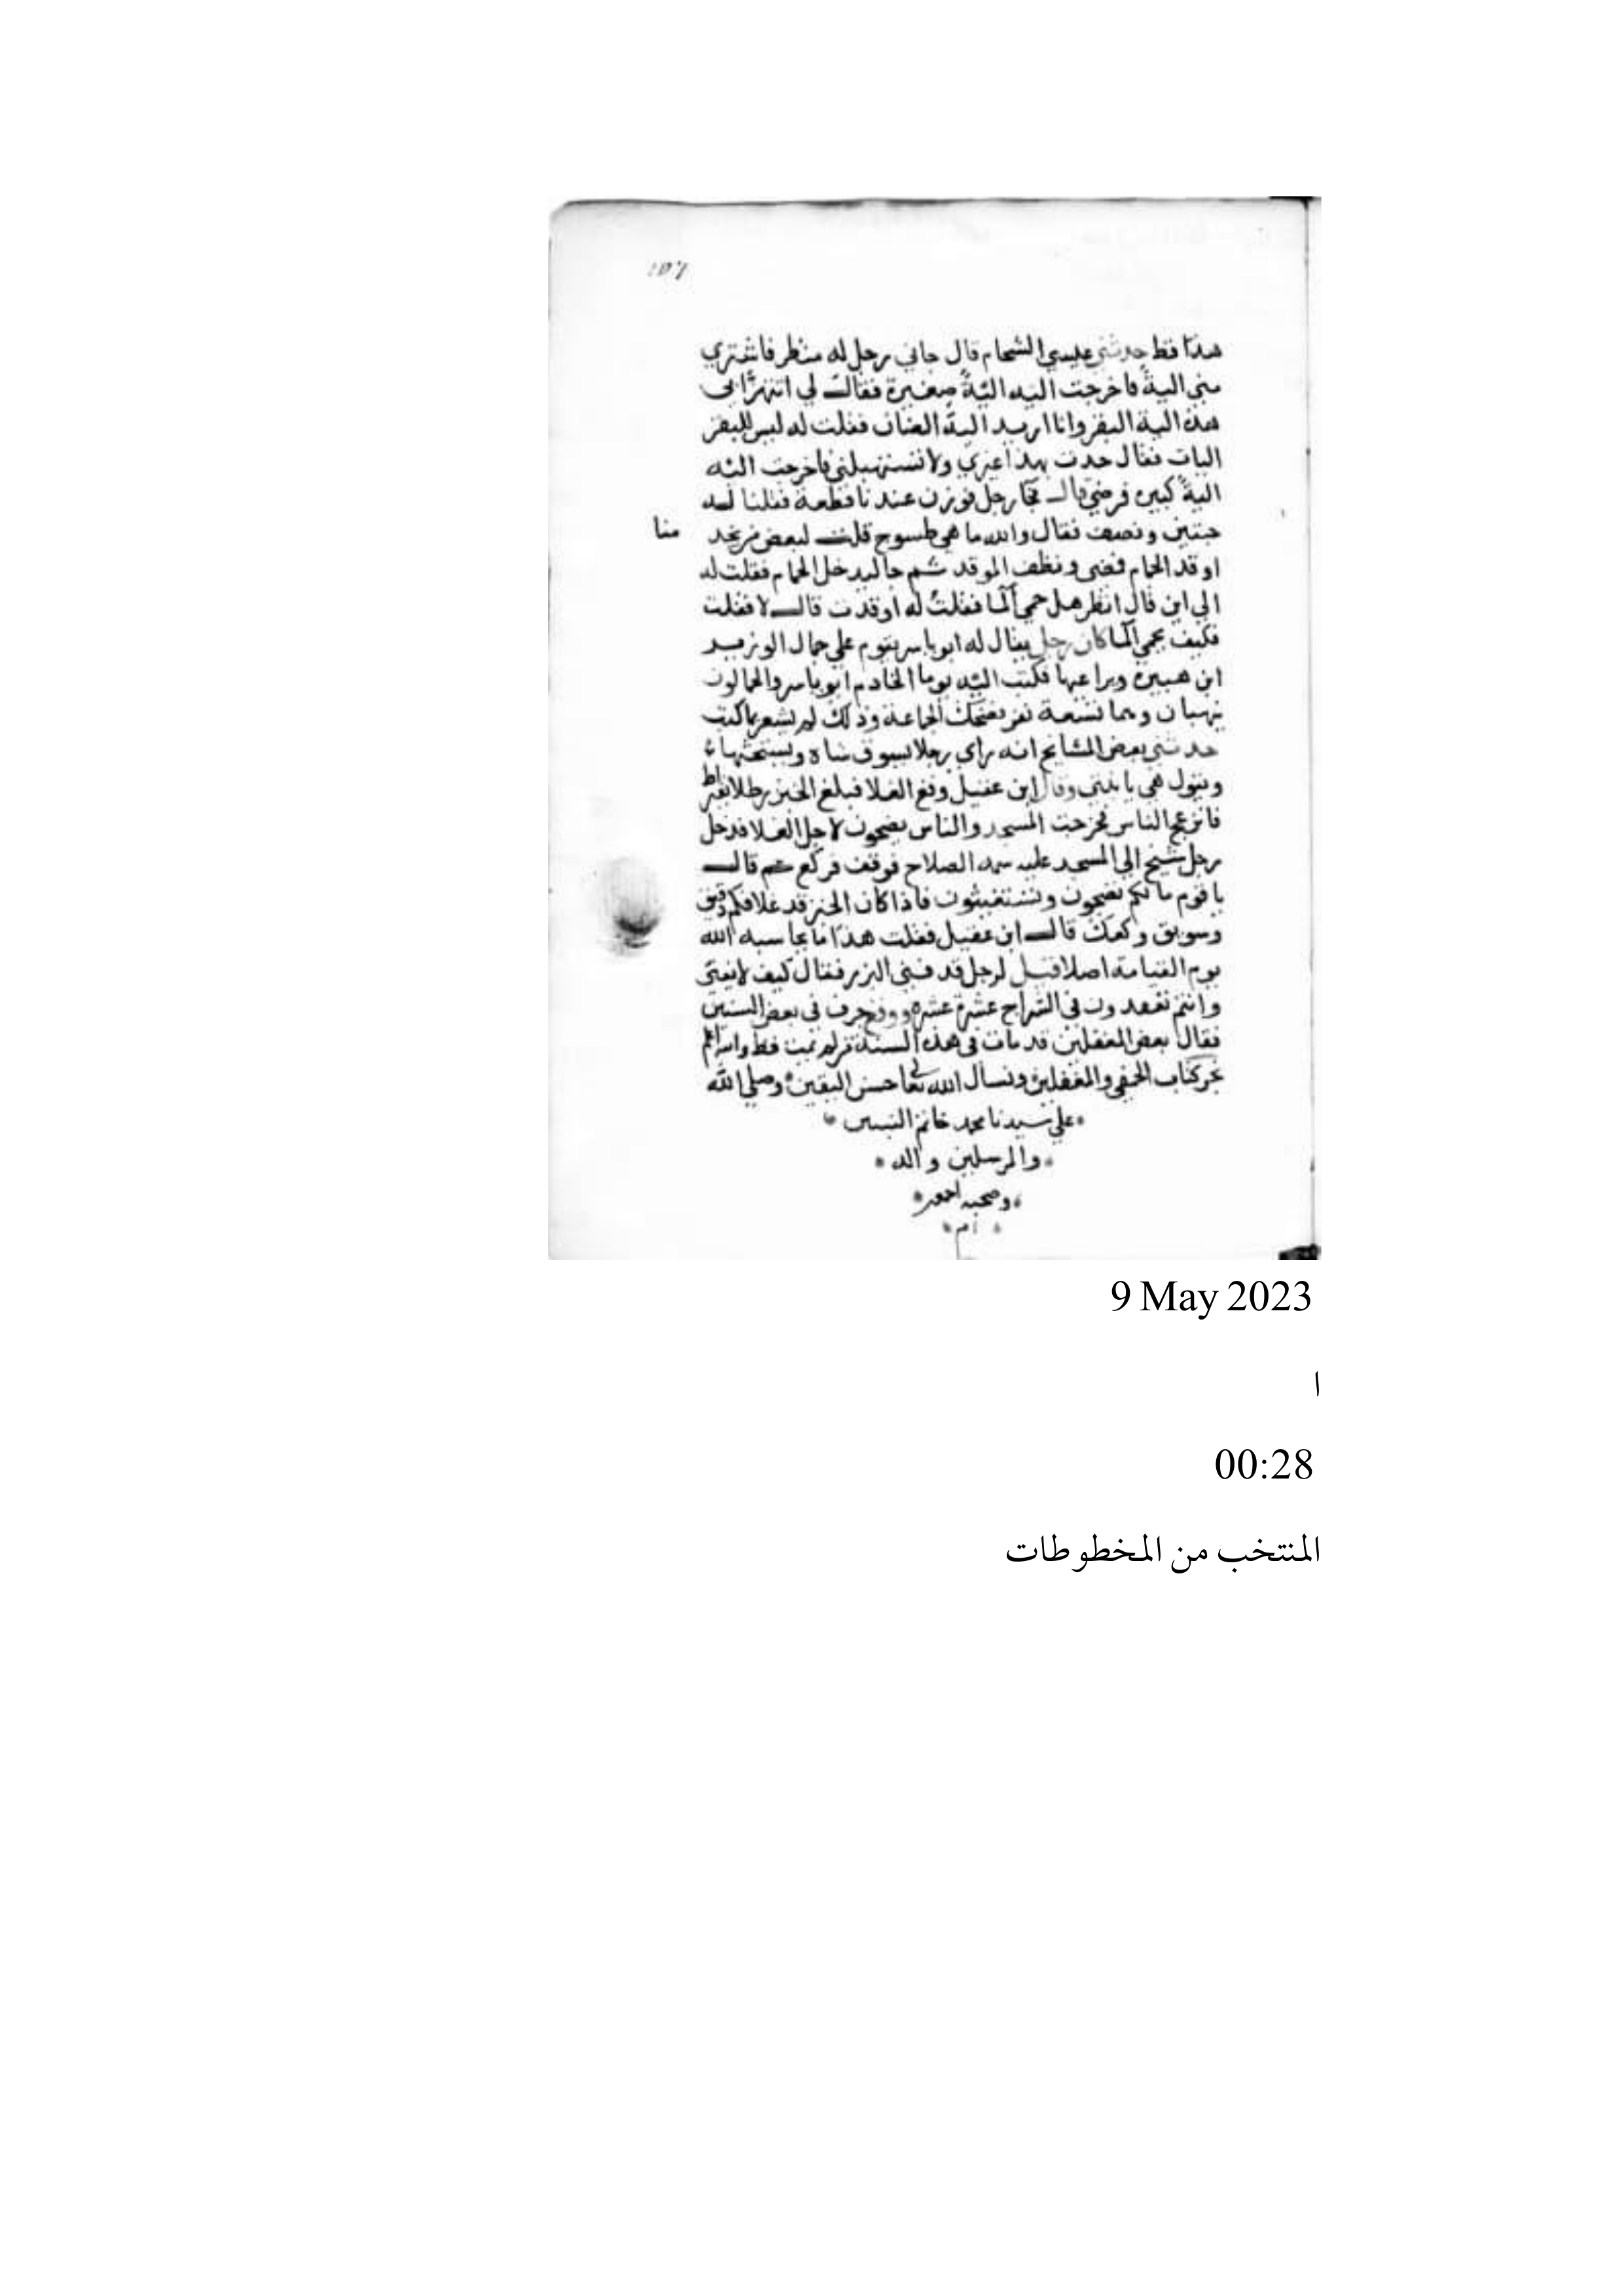 هذا قط حدثني عيسي الشحام قال جاني رجل له منظر فاشتري
مني الية فاخرجت اليه الية صغيرة فقال لي اتتهزا بي
هذه الية البقر وانا اريد الية الضان فقلت له ليس للبقر
اليات فقال حدث بهذا غيري ولا تستهبلني فاخرجت اليه
الية كبيرة فرضي قال رجل فوزن عندنا قطعة فقلنا له
حبتين ونصف فقال والله ما هي طسوج قلت لبعض من يخد منا
اوقد الحمام فمضى ونظف الموقد ثم جا ليدخل الحمام فقلت له
الي اين قال انظر هل حمي الما فقلت له اوقدت قال لا فقلت
فكيف يحمي الما كان رجل يقال له ابو ياسر يقوم علي جمال الوزير
ابن هبيرة ويراعيها فكتب اليه يوما الخادم ابو ياسر والجمالون
ينهيان وهما تسعة نفر فضحك الجماعة وذلك لم يشعر ما كتب
حدثني بعض المشايخ انه راي رجلا يسوق شاه ويستحثها
ويقول هي يا بنتي وقال ابن عقيل وقع الغلا فبلغ الخبز رطلا بقيراط
فانزعج الناس فخرجت المسجد والناس يضجون لاجل الغلا فدخل
رجل شيخ الي المسجد عليه سمه الصلاح فوقف فركع ثم قال
يا قوم ما لكم تضجون وتستغيثون فاذا كان الخبز قد غلا فكم دقيق
وسويق وكعك قال ابن عقيل فقلت هذا ما يحاسبه الله
يوم القيامة اصلا قيل لرجل قد فني البزر فقال كيف لا يفني
وانتم تقعدون في السراج عشرة عشرة ووقع حرف في بعض السنين
فقال بعض المغفلين قد مات في هذه السنة من لم يمت قط والله اعلم
نجز كتاب الحمقي والمغفلين ونسال الله تعا حسن اليقين وصلي الله
علي سيدنا محمد خاتم النبيين
والمرسلين واله
وصحبه اجمعين
ام
9 May 2023
ا
00:28
المنتخب من المخطوطات